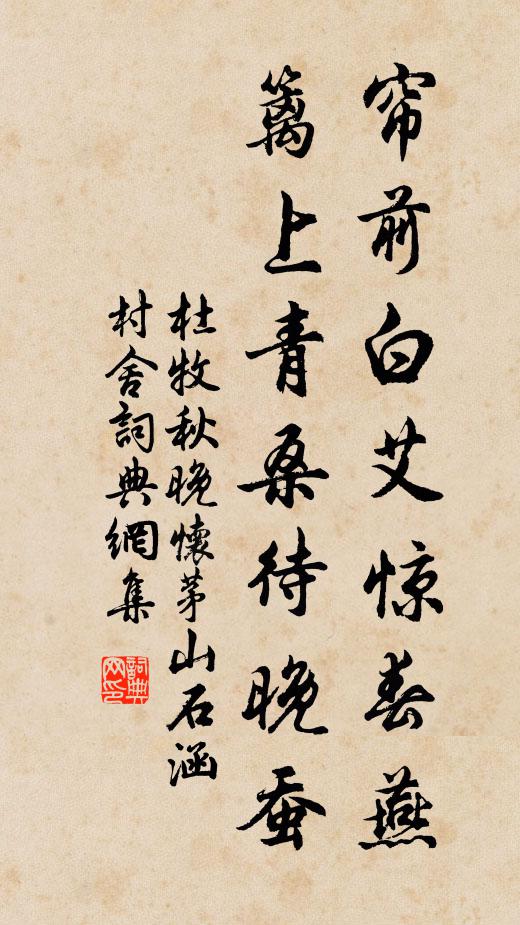 帘前白艾惊春燕
篱上青桑待晚蚕
杜牧秋晚懷茅山石涵
村舍詞典網集
詞典
网印